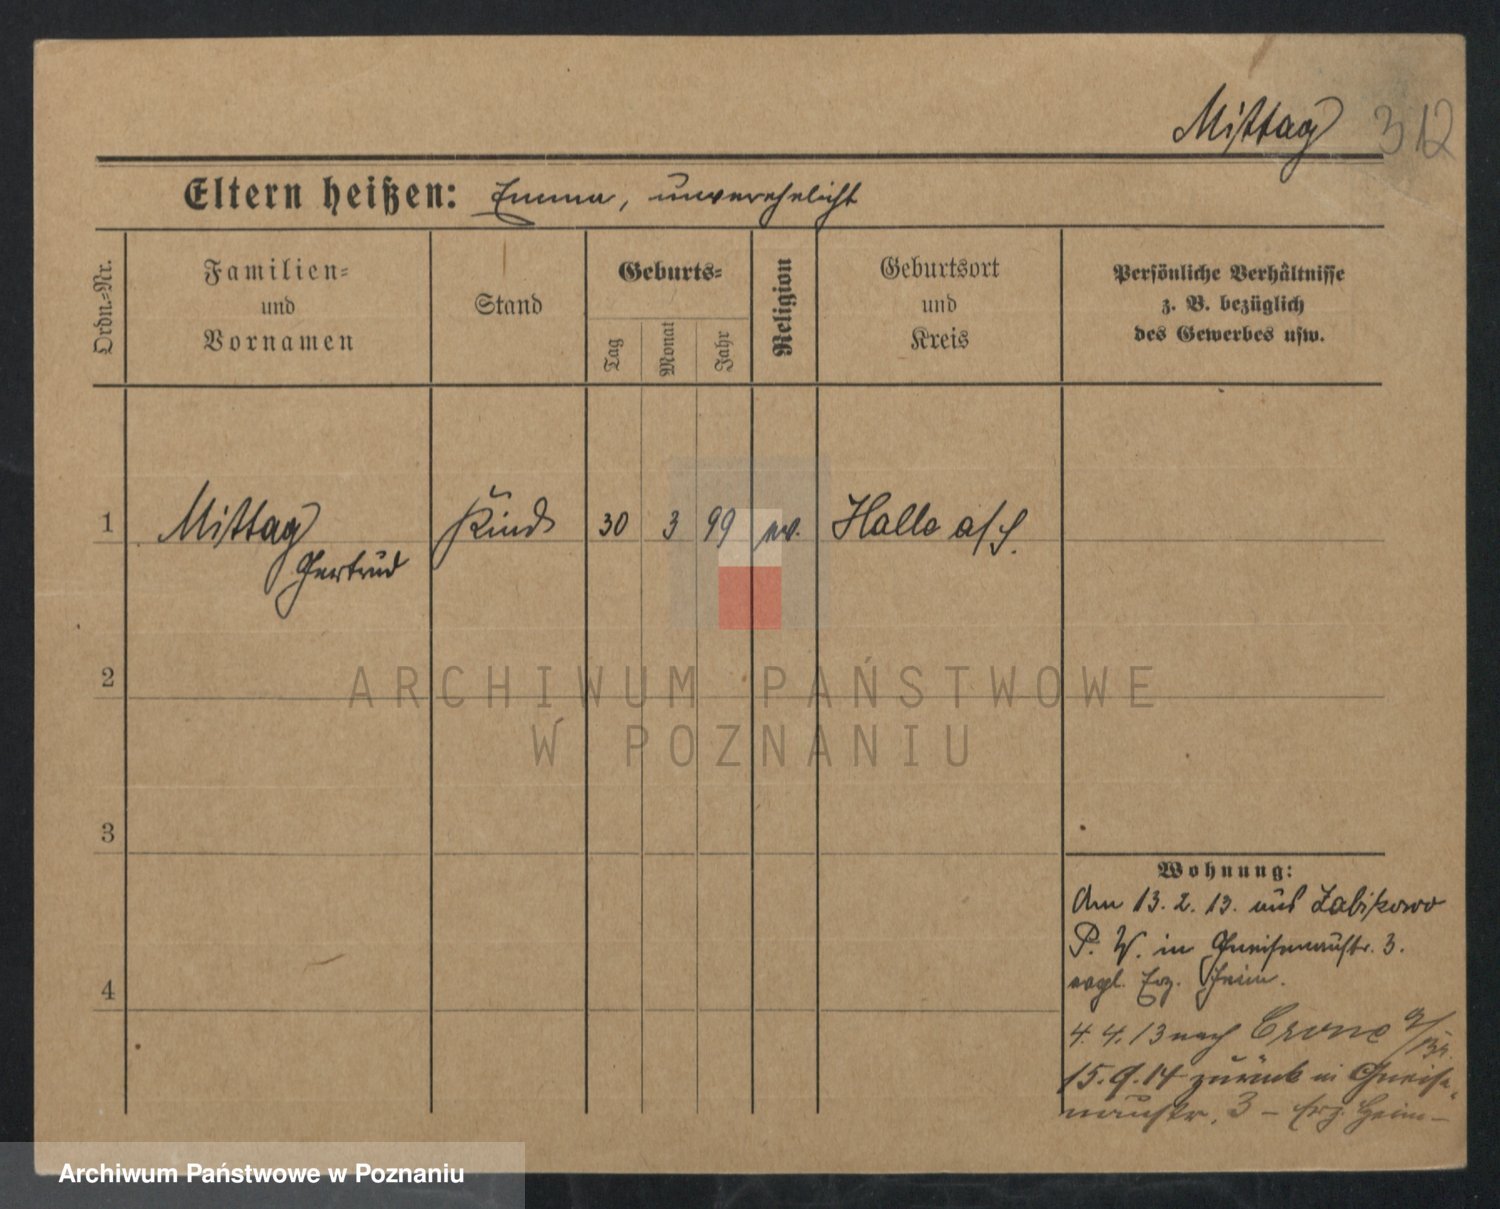 Mittag 312
Eltern heißen: Emma, unverehelicht
Ordn.-Nr.
Familien-
und
Vornamen
Stand
Geburts-
Tag
Monat
Jahr
Religion
Geburtsort
und
Kreis
Persönliche Verhältnisse
z. B. bezüglich
des Gewerbes usw.
1 Mittag Kind 30 3 99 ev. Halle a/S.
Gertrud
2
3
4
Wohnung:
Am 13. 2. 13. aus Zabikowo
P. W. in Gneisenaustr. 3.
evgl. Erz. Heim.
4. 4. 13 nach Crone a/Br.
15. 9. 14 zurück in Gneise-
naustr. 3 – Erz. Heim –
ARCHIWUM PAŃSTWOWE
W POZNANIU
Archiwum Państwowe w Poznaniu